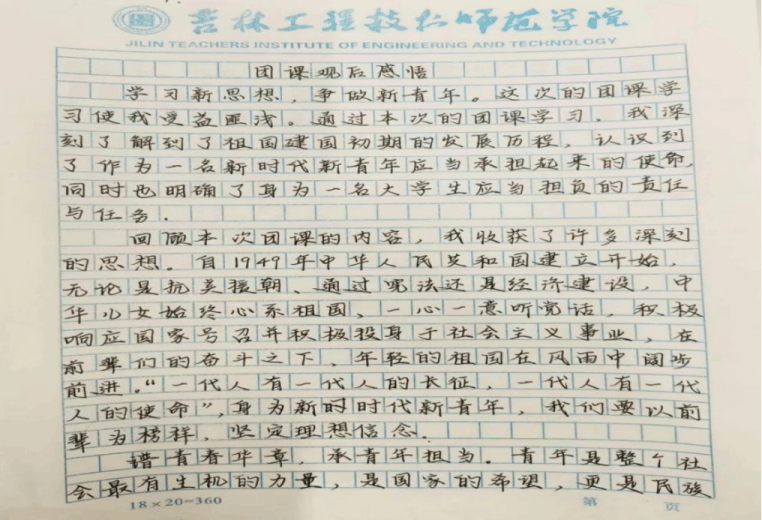 吉林工程技术师范学院
JILIN TEACHERS INSTITUTE OF ENGINEERING AND TECHNOLOGY
团课观后感悟
学习新思想，争做新青年。这次的团课学
习使我受益匪浅。通过本次的团课学习，我深
刻了解到了祖国建国初期的发展历程，认识到
了作为一名新时代新青年应当承担起来的使命，
同时也明确了身为一名大学生应当担负的责任
与任务．
回顾本次团课的内容，我收获了许多深刻
的思想．自1949年中华人民共和国建立开始，
无论是抗美援朝、通过宪法还是经济建设，中
华儿女始终心系祖国，一心一意听党话，积极
响应国家号召并积极投身于社会主义事业，在
前辈们的奋斗之下，年轻的祖国在风雨中阔步
前进．“一代人有一代人的长征，一代人有一代
人的使命”，身为新的时代新青年，我们要以前
辈为榜样，坚定理想信念．
谱青春华章，承青年担当．青年是整个社
会最有生机的力量，是国家的希望，更是民族
18×20=360
第 页